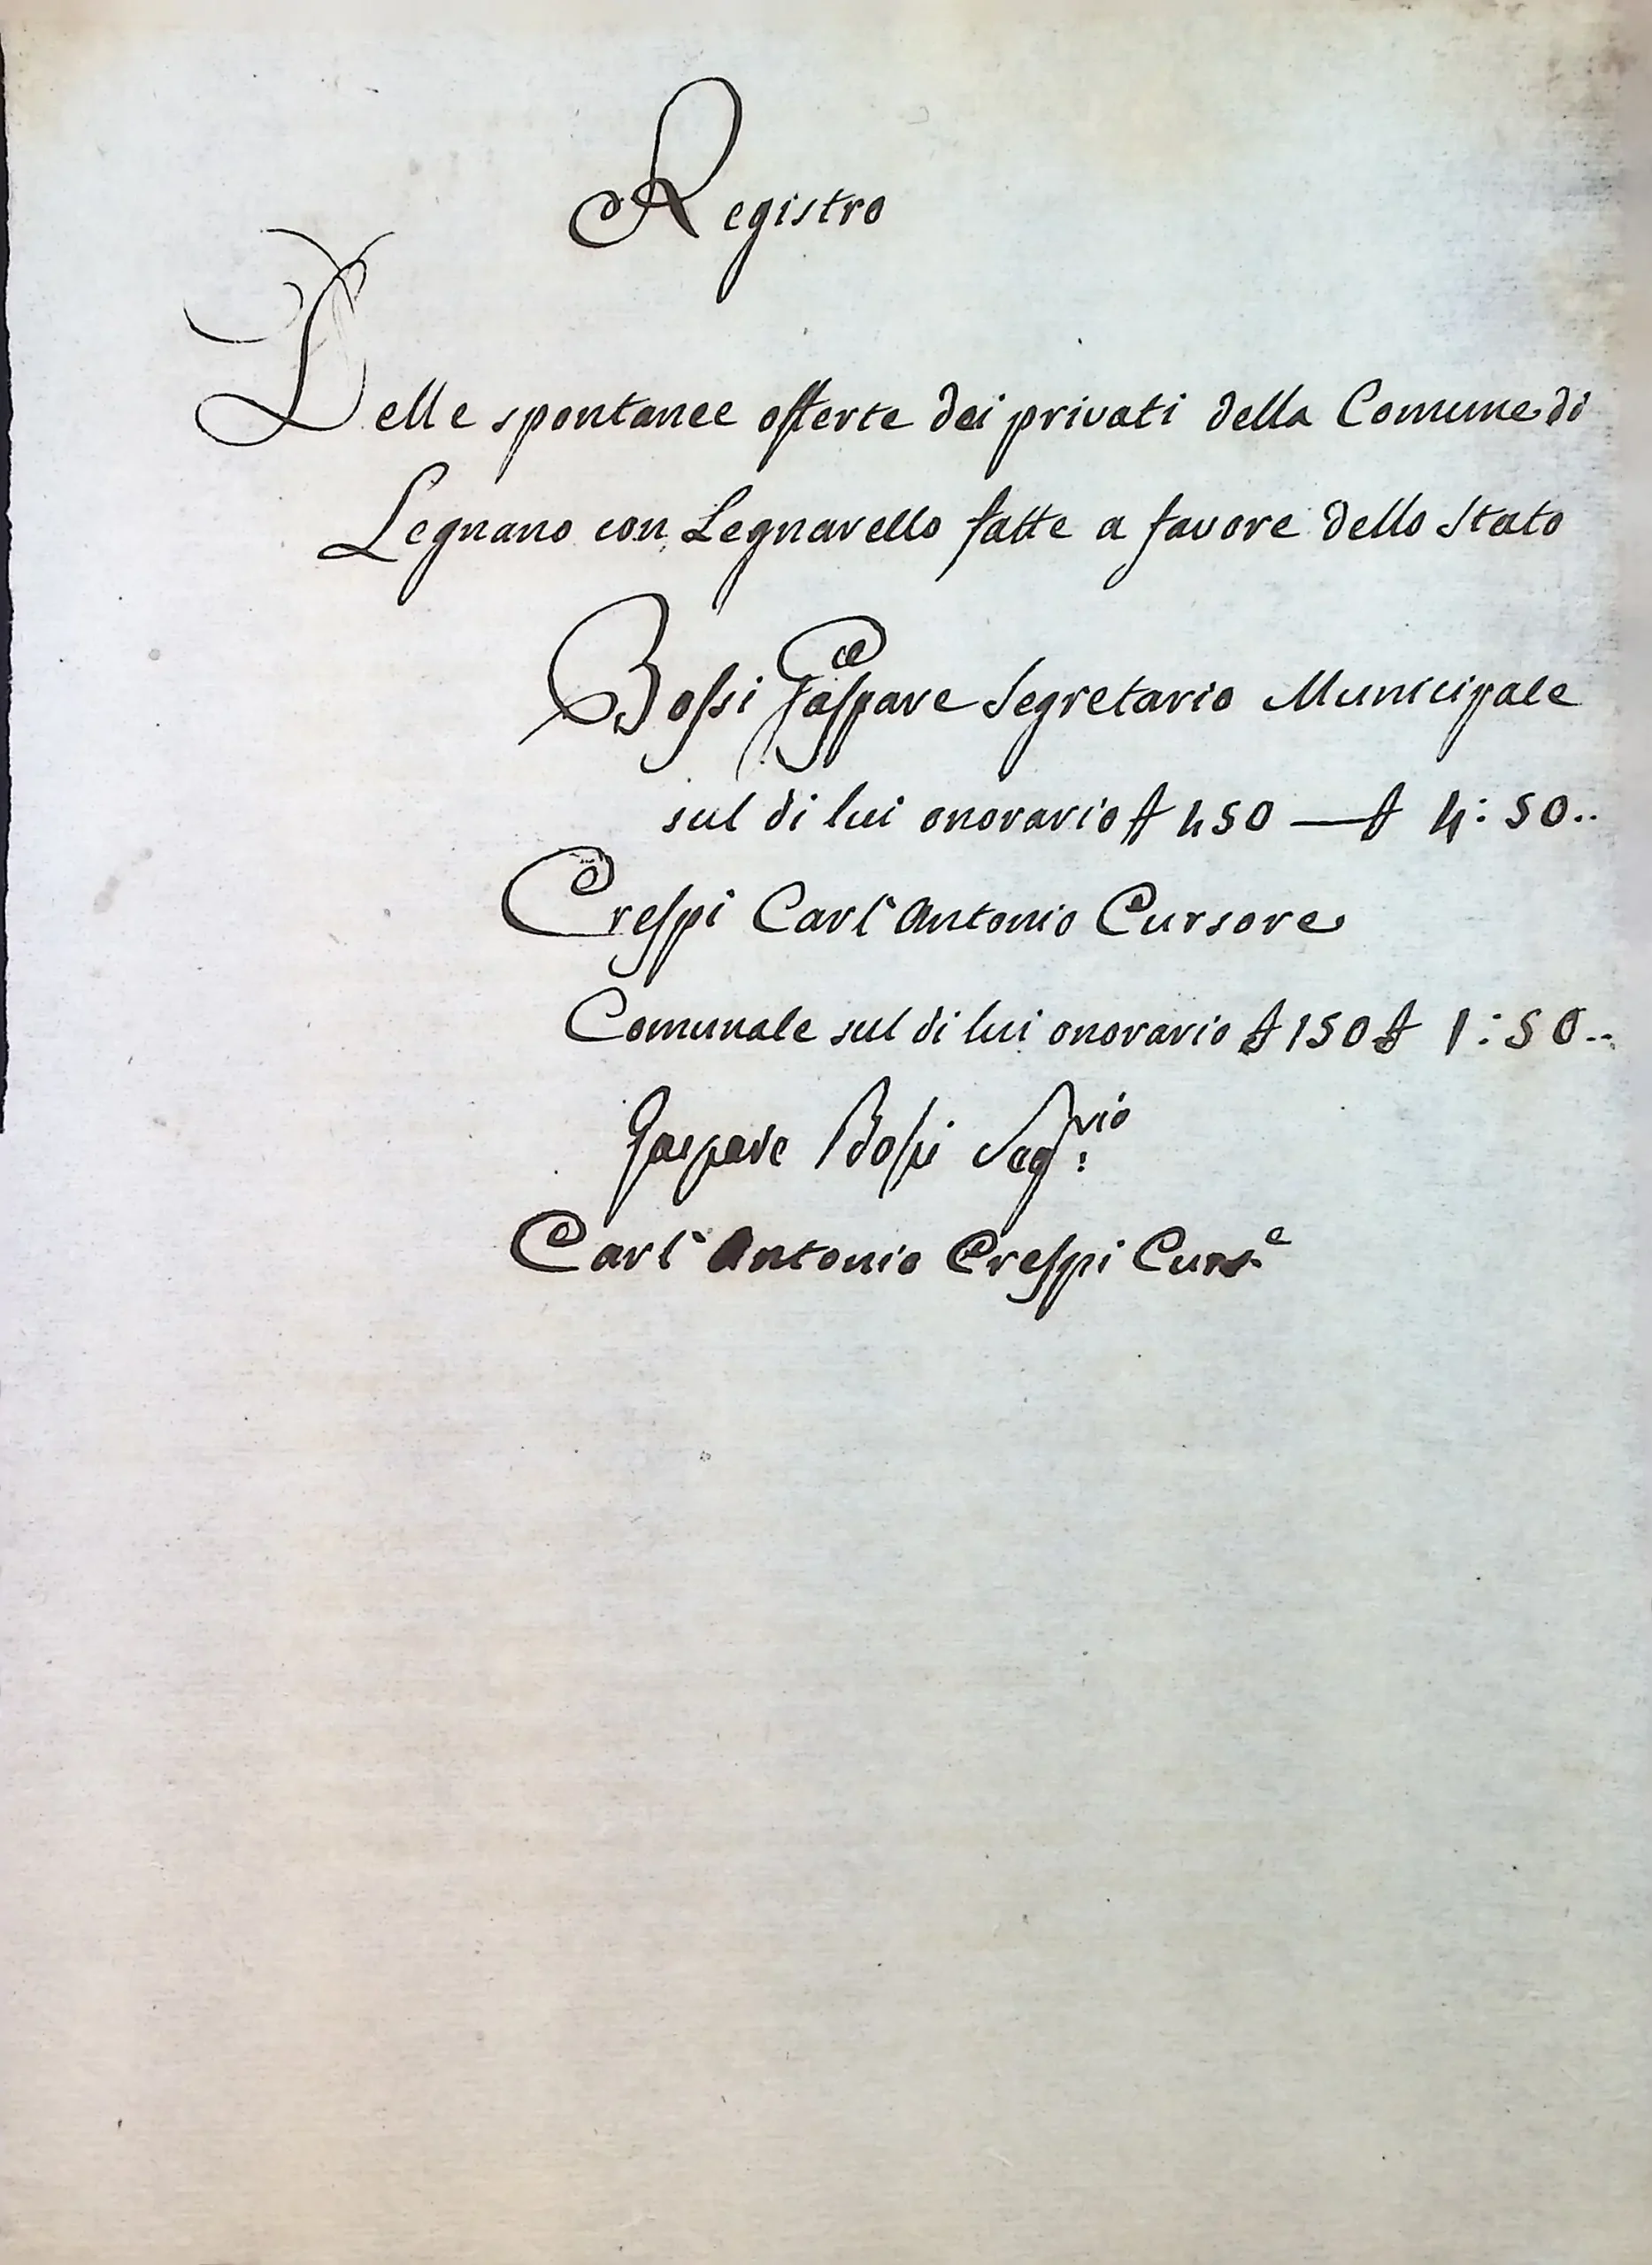 Registro
Delle spontanee offerte dei privati della Comune di
Legnano con Legnarello fatte a favore dello Stato
Bossi Gaspare Segretario Municipale
sul di lui onorario £ 450 — £ 4:50..
Crespi Carl'Antonio Cursore
Comunale sul di lui onorario £ 150 £ 1:50..
Gaspare Bossi Seg.rio
Carl'Antonio Crespi Curs.e